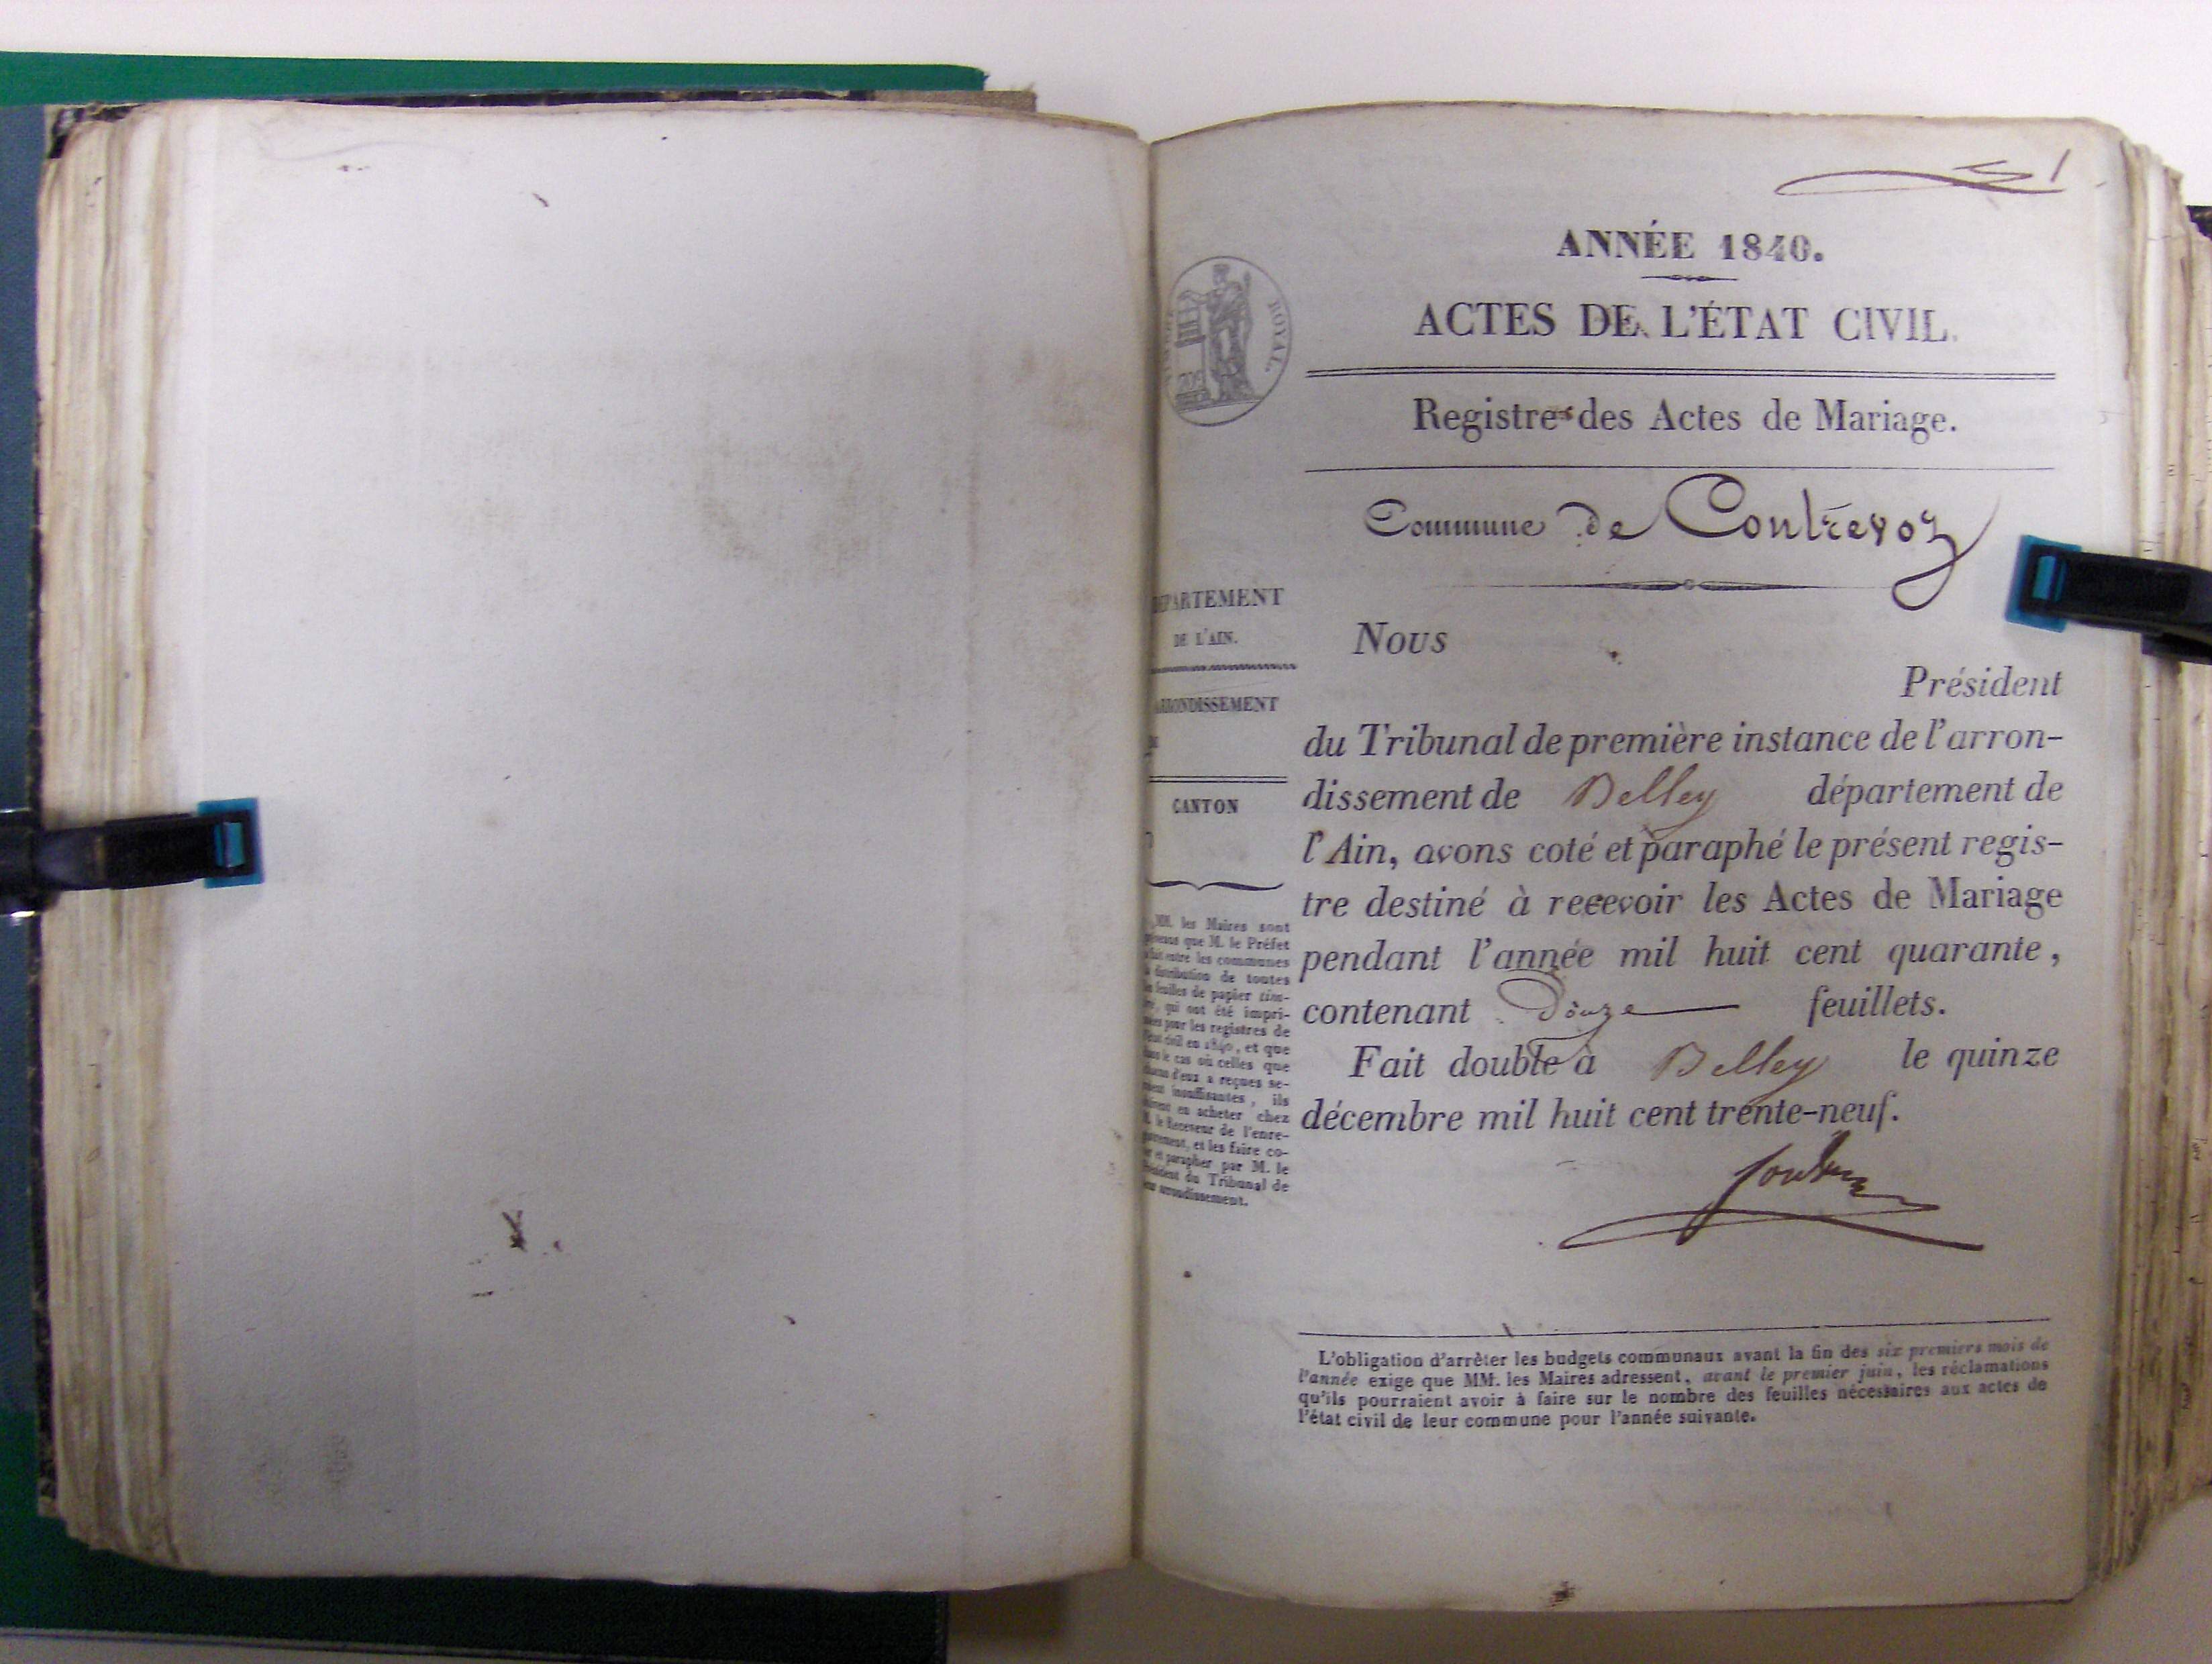 1
ANNÉE 1840.
ACTES DE L'ÉTAT CIVIL.
ROYAL.
Registre des Actes de Mariage.
Commune de Contrevoz
DÉPARTEMENT
DE L'AIN.
ARRONDISSEMENT
CANTON
MM. les Maires sont
que M. le Préfet
entre les communes
distribution de toutes
feuilles de papier tim-
qui ont été impri-
pour les registres de
civil en 1840, et que
le cas où celles que
d'eux a reçues se-
insuffisantes, ils
en acheter chez
le Receveur de l'enre-
et les faire co-
et parapher par M. le
Président du Tribunal de
arrondissement.
Nous
Président
du Tribunal de première instance de l'arron-
dissement de Belley département de
l'Ain, avons coté et paraphé le présent regis-
tre destiné à recevoir les Actes de Mariage
pendant l'année mil huit cent quarante,
contenant Douze feuillets.
Fait double à Belley le quinze
décembre mil huit cent trente-neuf.
L'obligation d'arrêter les budgets communaux avant la fin des six premiers mois de
l'année exige que MM. les Maires adressent, avant le premier juin, les réclamations
qu'ils pourraient avoir à faire sur le nombre des feuilles nécessaires aux actes de
l'état civil de leur commune pour l'année suivante.